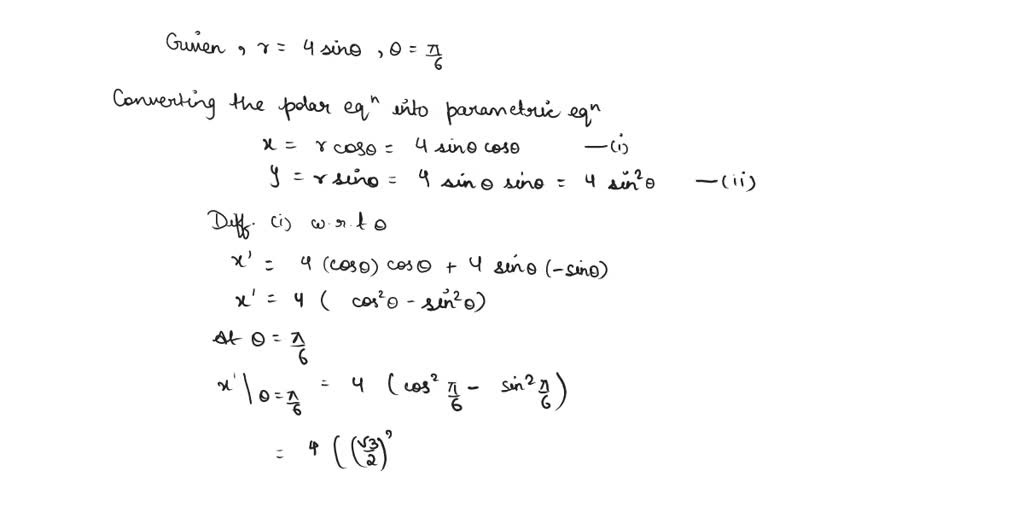 Given, r = 4 sinθ, θ = π/6
Converting the polar eqⁿ into parametric eqⁿ
x = r cosθ = 4 sinθ cosθ —(i)
y = r sinθ = 4 sinθ sinθ = 4 sin²θ —(ii)
Diff. (i) w.r.t θ
x' = 4 (cosθ) cosθ + 4 sinθ (-sinθ)
x' = 4 ( cos²θ - sin²θ)
At θ = π/6
x' | θ = π/6 = 4 (cos² π/6 - sin² π/6)
= 4 ((√3/2)²